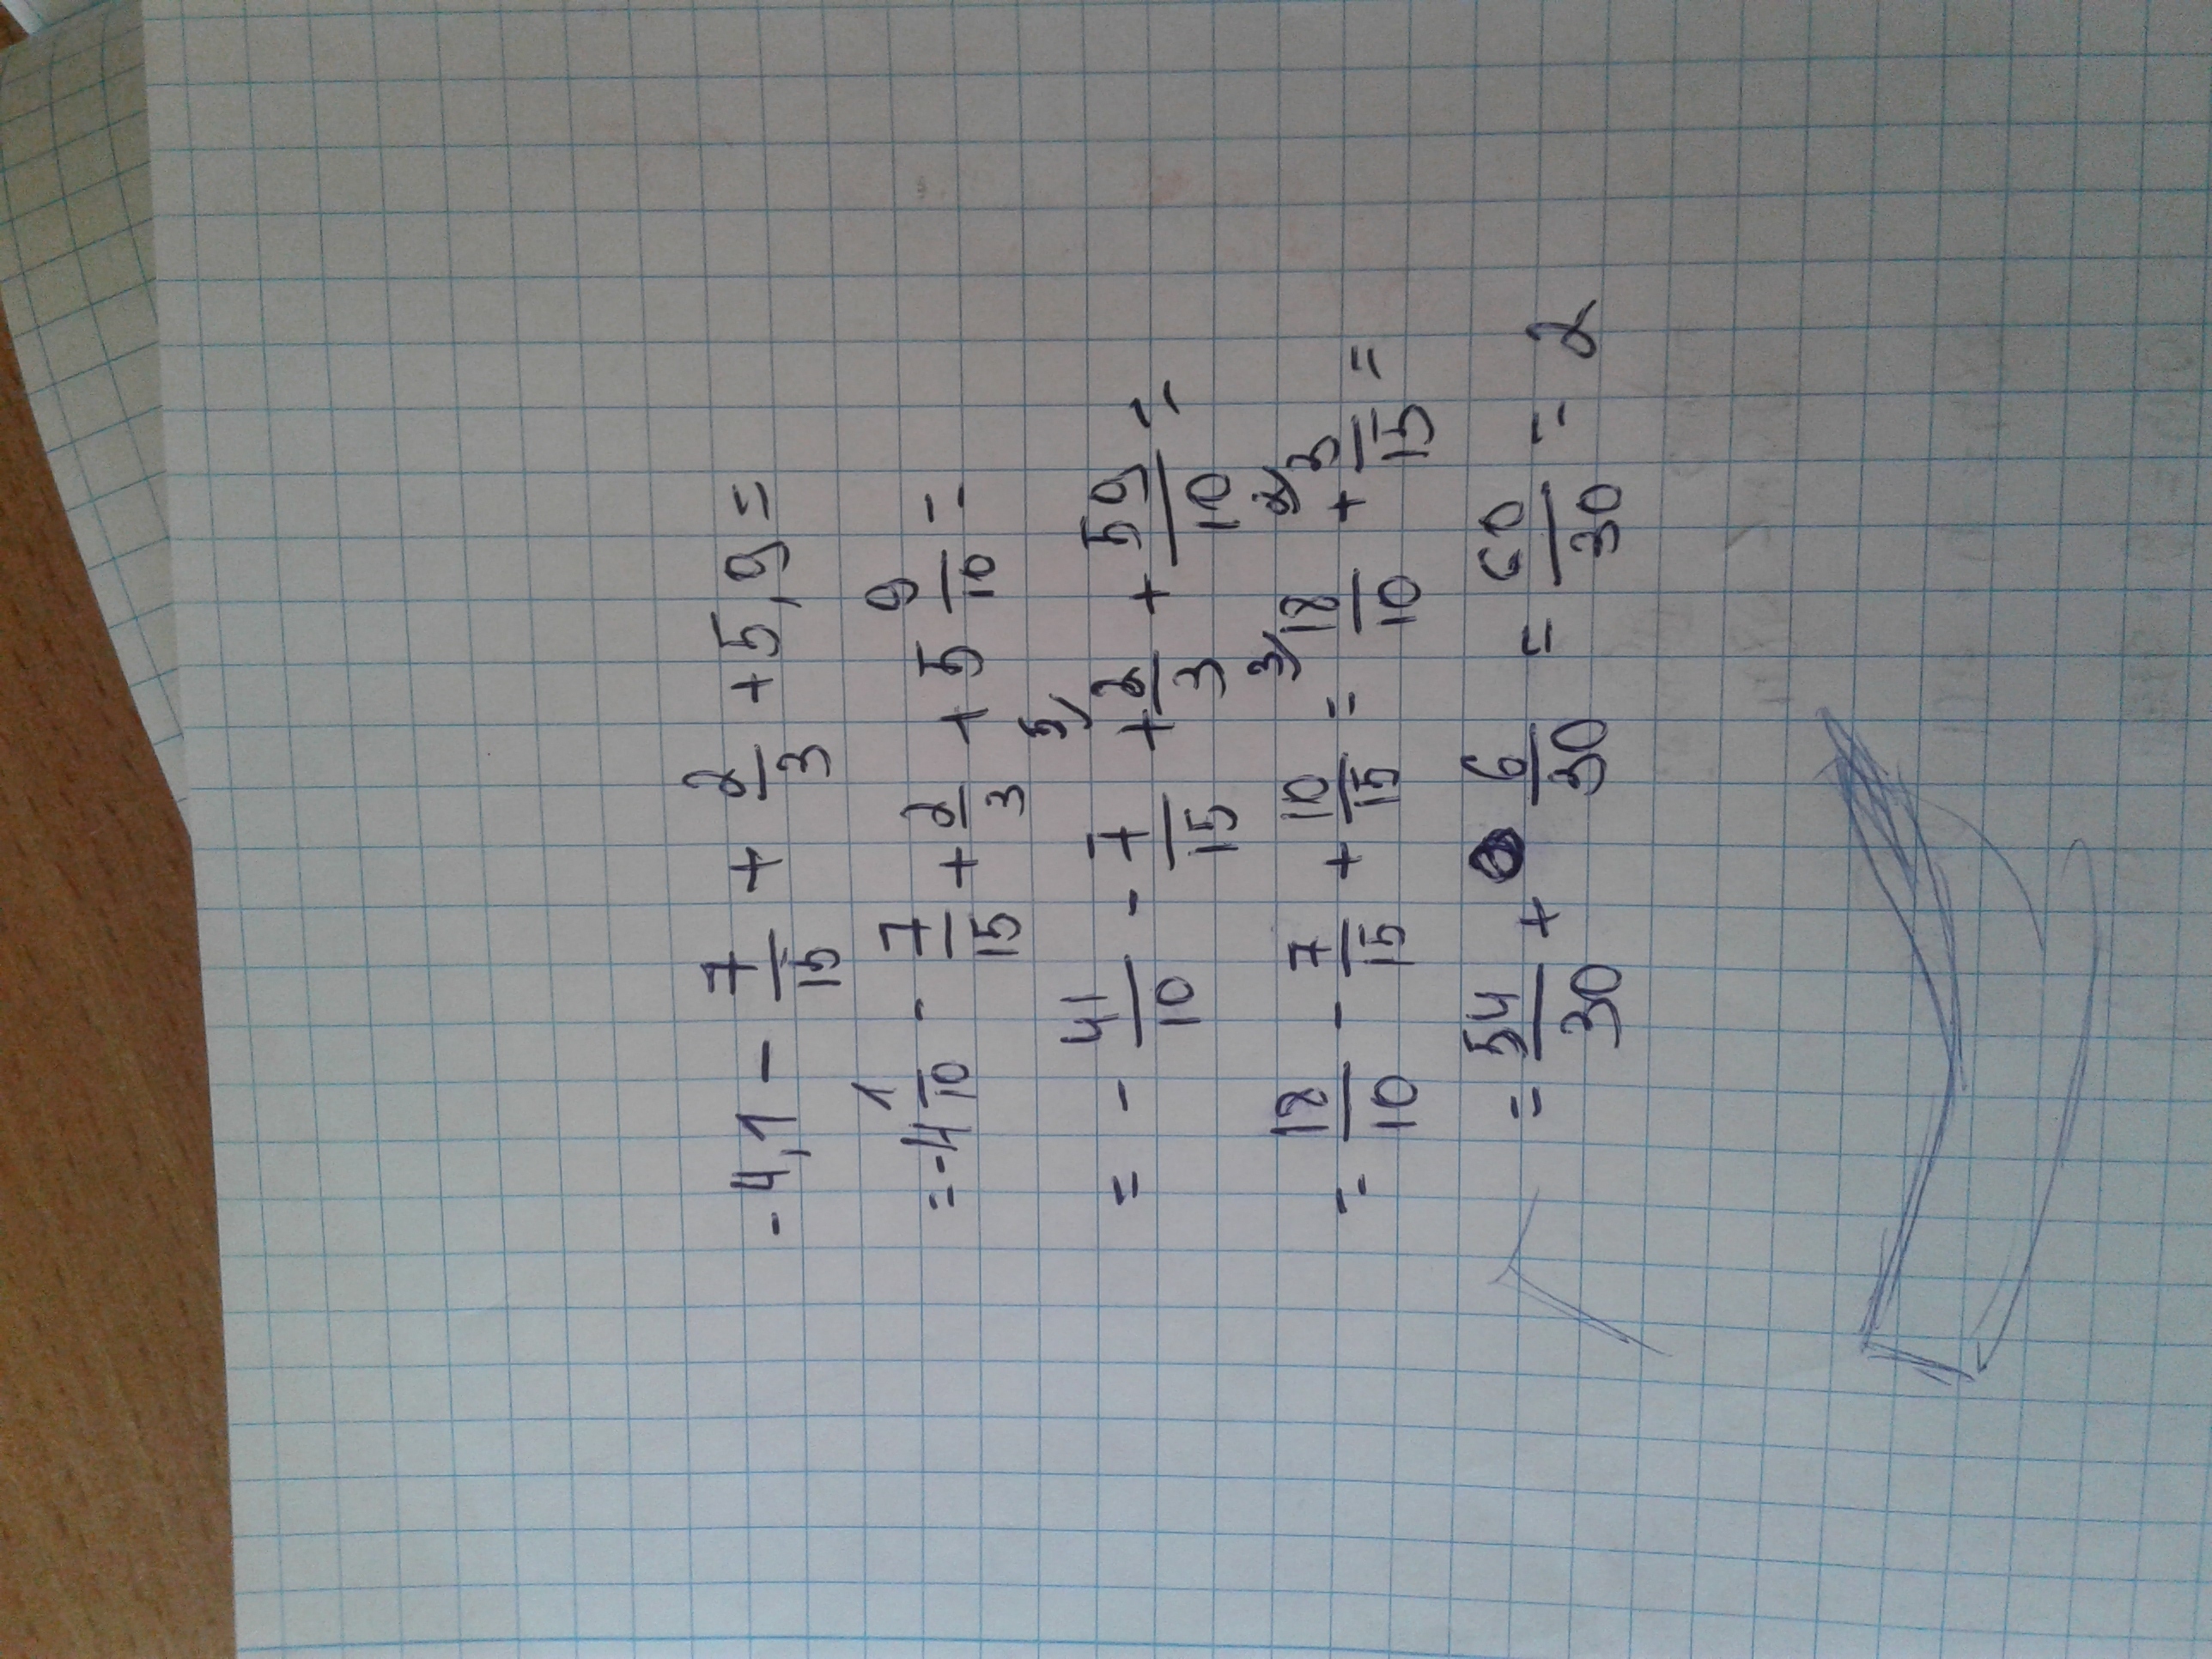 -4,1 - 7/15 + 2/3 + 5,9 =
= -4 1/10 - 7/15 + 2/3 + 5 9/10 =
= - 41/10 - 7/15 + 5/ 2/3 + 59/10 =
= 18/10 - 7/15 + 10/15 = 3/ 18/10 + 2/ 3/15 =
= 54/30 + 6/30 = 60/30 = 2